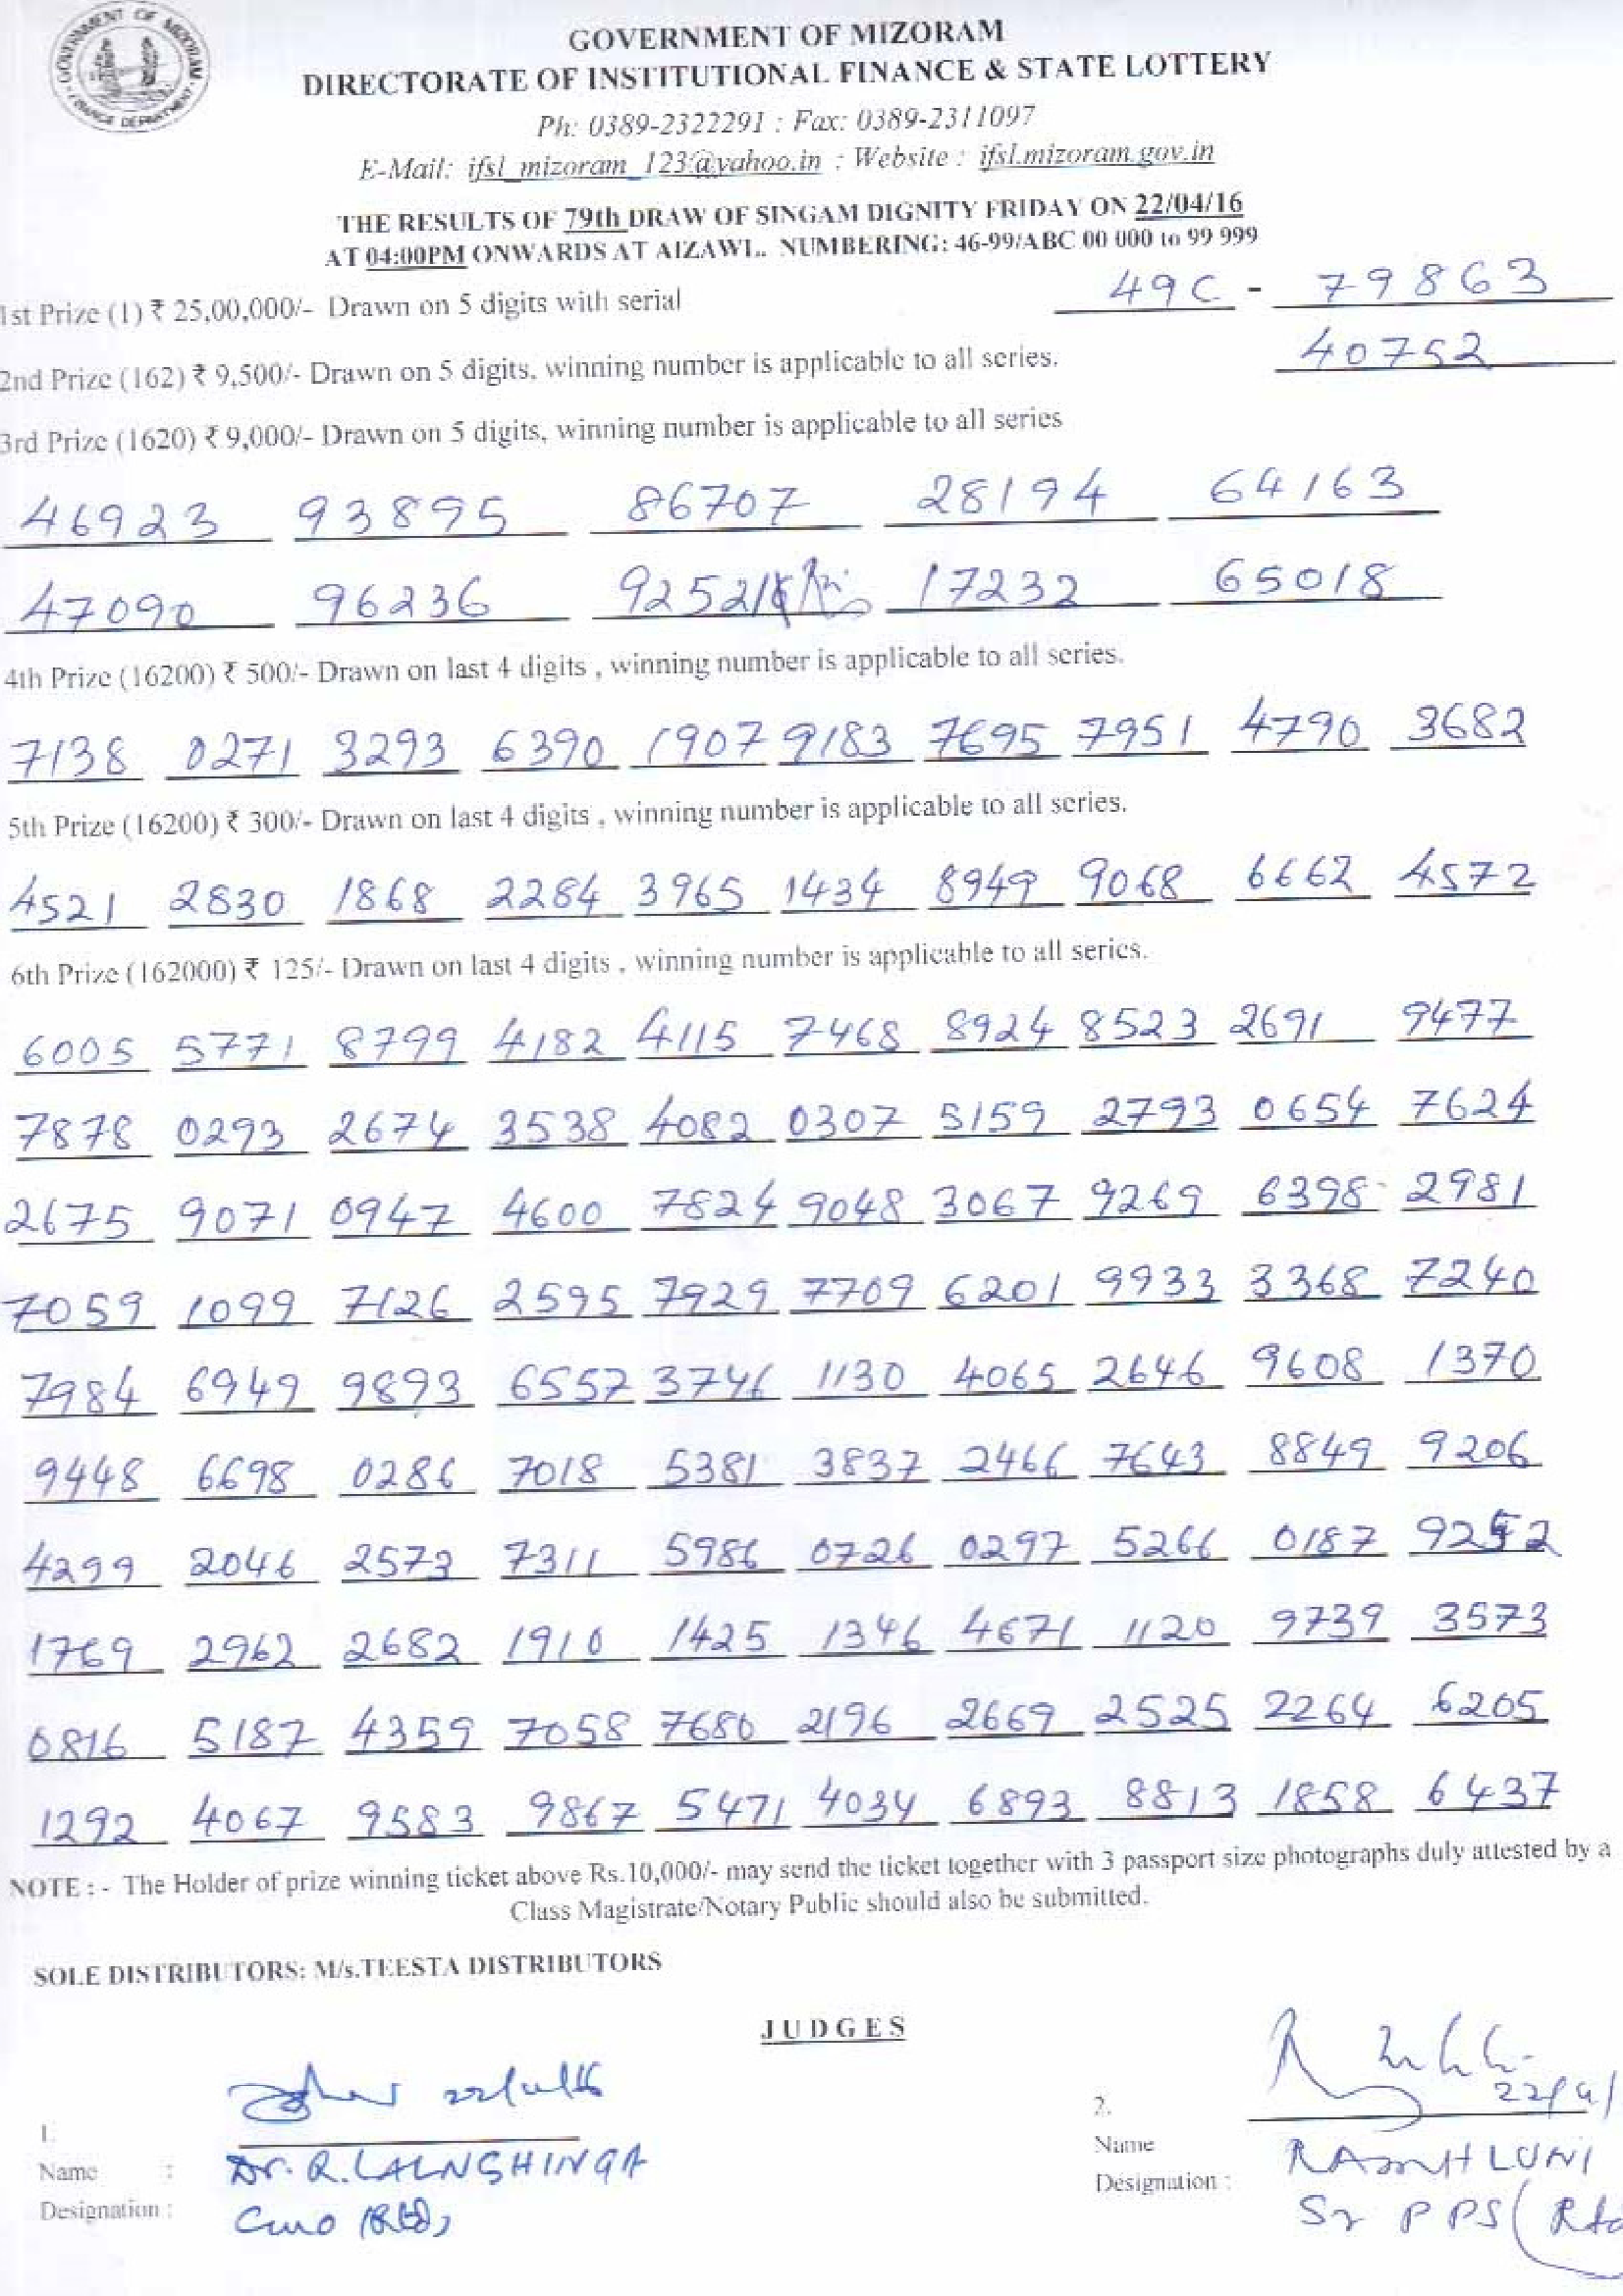 GOVERNMENT OF MIZORAM
FINANCE DEPARTMENT
GOVERNMENT OF MIZORAM
DIRECTORATE OF INSTITUTIONAL FINANCE & STATE LOTTERY
Ph: 0389-2322291 : Fax: 0389-2311097
E-Mail: ifsl_mizoram_123@yahoo.in : Website : ifsl.mizoram.gov.in
THE RESULTS OF 79th DRAW OF SINGAM DIGNITY FRIDAY ON 22/04/16
AT 04:00PM ONWARDS AT AIZAWL. NUMBERING: 46-99/ABC 00 000 to 99 999
1st Prize (1) ₹ 25,00,000/- Drawn on 5 digits with serial 49C - 79863
2nd Prize (162) ₹ 9,500/- Drawn on 5 digits, winning number is applicable to all series. 40752
3rd Prize (1620) ₹ 9,000/- Drawn on 5 digits, winning number is applicable to all series
46923 93895 86707 28194 64163
47090 96236 92521 17232 65018
4th Prize (16200) ₹ 500/- Drawn on last 4 digits , winning number is applicable to all series.
7138 0271 3293 6390 1907 9183 7695 7951 4790 3682
5th Prize (16200) ₹ 300/- Drawn on last 4 digits , winning number is applicable to all series.
4521 2830 1868 2284 3965 1434 8949 9068 6662 4572
6th Prize (162000) ₹ 125/- Drawn on last 4 digits , winning number is applicable to all series.
6005 5771 8799 4182 4115 7468 8924 8523 2691 9477
7878 0293 2674 3538 4082 0307 5159 2793 0654 7624
2675 9071 0947 4600 7824 9048 3067 9269 6398 2981
7059 1099 7126 2595 7929 7709 6201 9933 3368 7240
7984 6949 9893 6557 3746 1130 4065 2646 9608 1370
9448 6698 0286 7018 5381 3837 2466 7643 8849 9206
4299 2046 2573 7311 5986 0726 0297 5266 0187
1769 2962 2682 1910 1425 1346 4671 1120 9739 3573
0816 5187 4359 7058 7680 2196 2669 2525 2264 6205
1292 4067 9583 9867 5471 4034 6893 8813 1858 6437
NOTE : - The Holder of prize winning ticket above Rs.10,000/- may send the ticket together with 3 passport size photographs duly attested by a
Class Magistrate/Notary Public should also be submitted.
SOLE DISTRIBUTORS: M/s.TEESTA DISTRIBUTORS
JUDGES
1.
Name : Dr. R. LALNGHINGA
Designation : CMO (Rtd)
2. 22/4/
Name RAMHLUNI
Designation : Sr PPS (Rtd